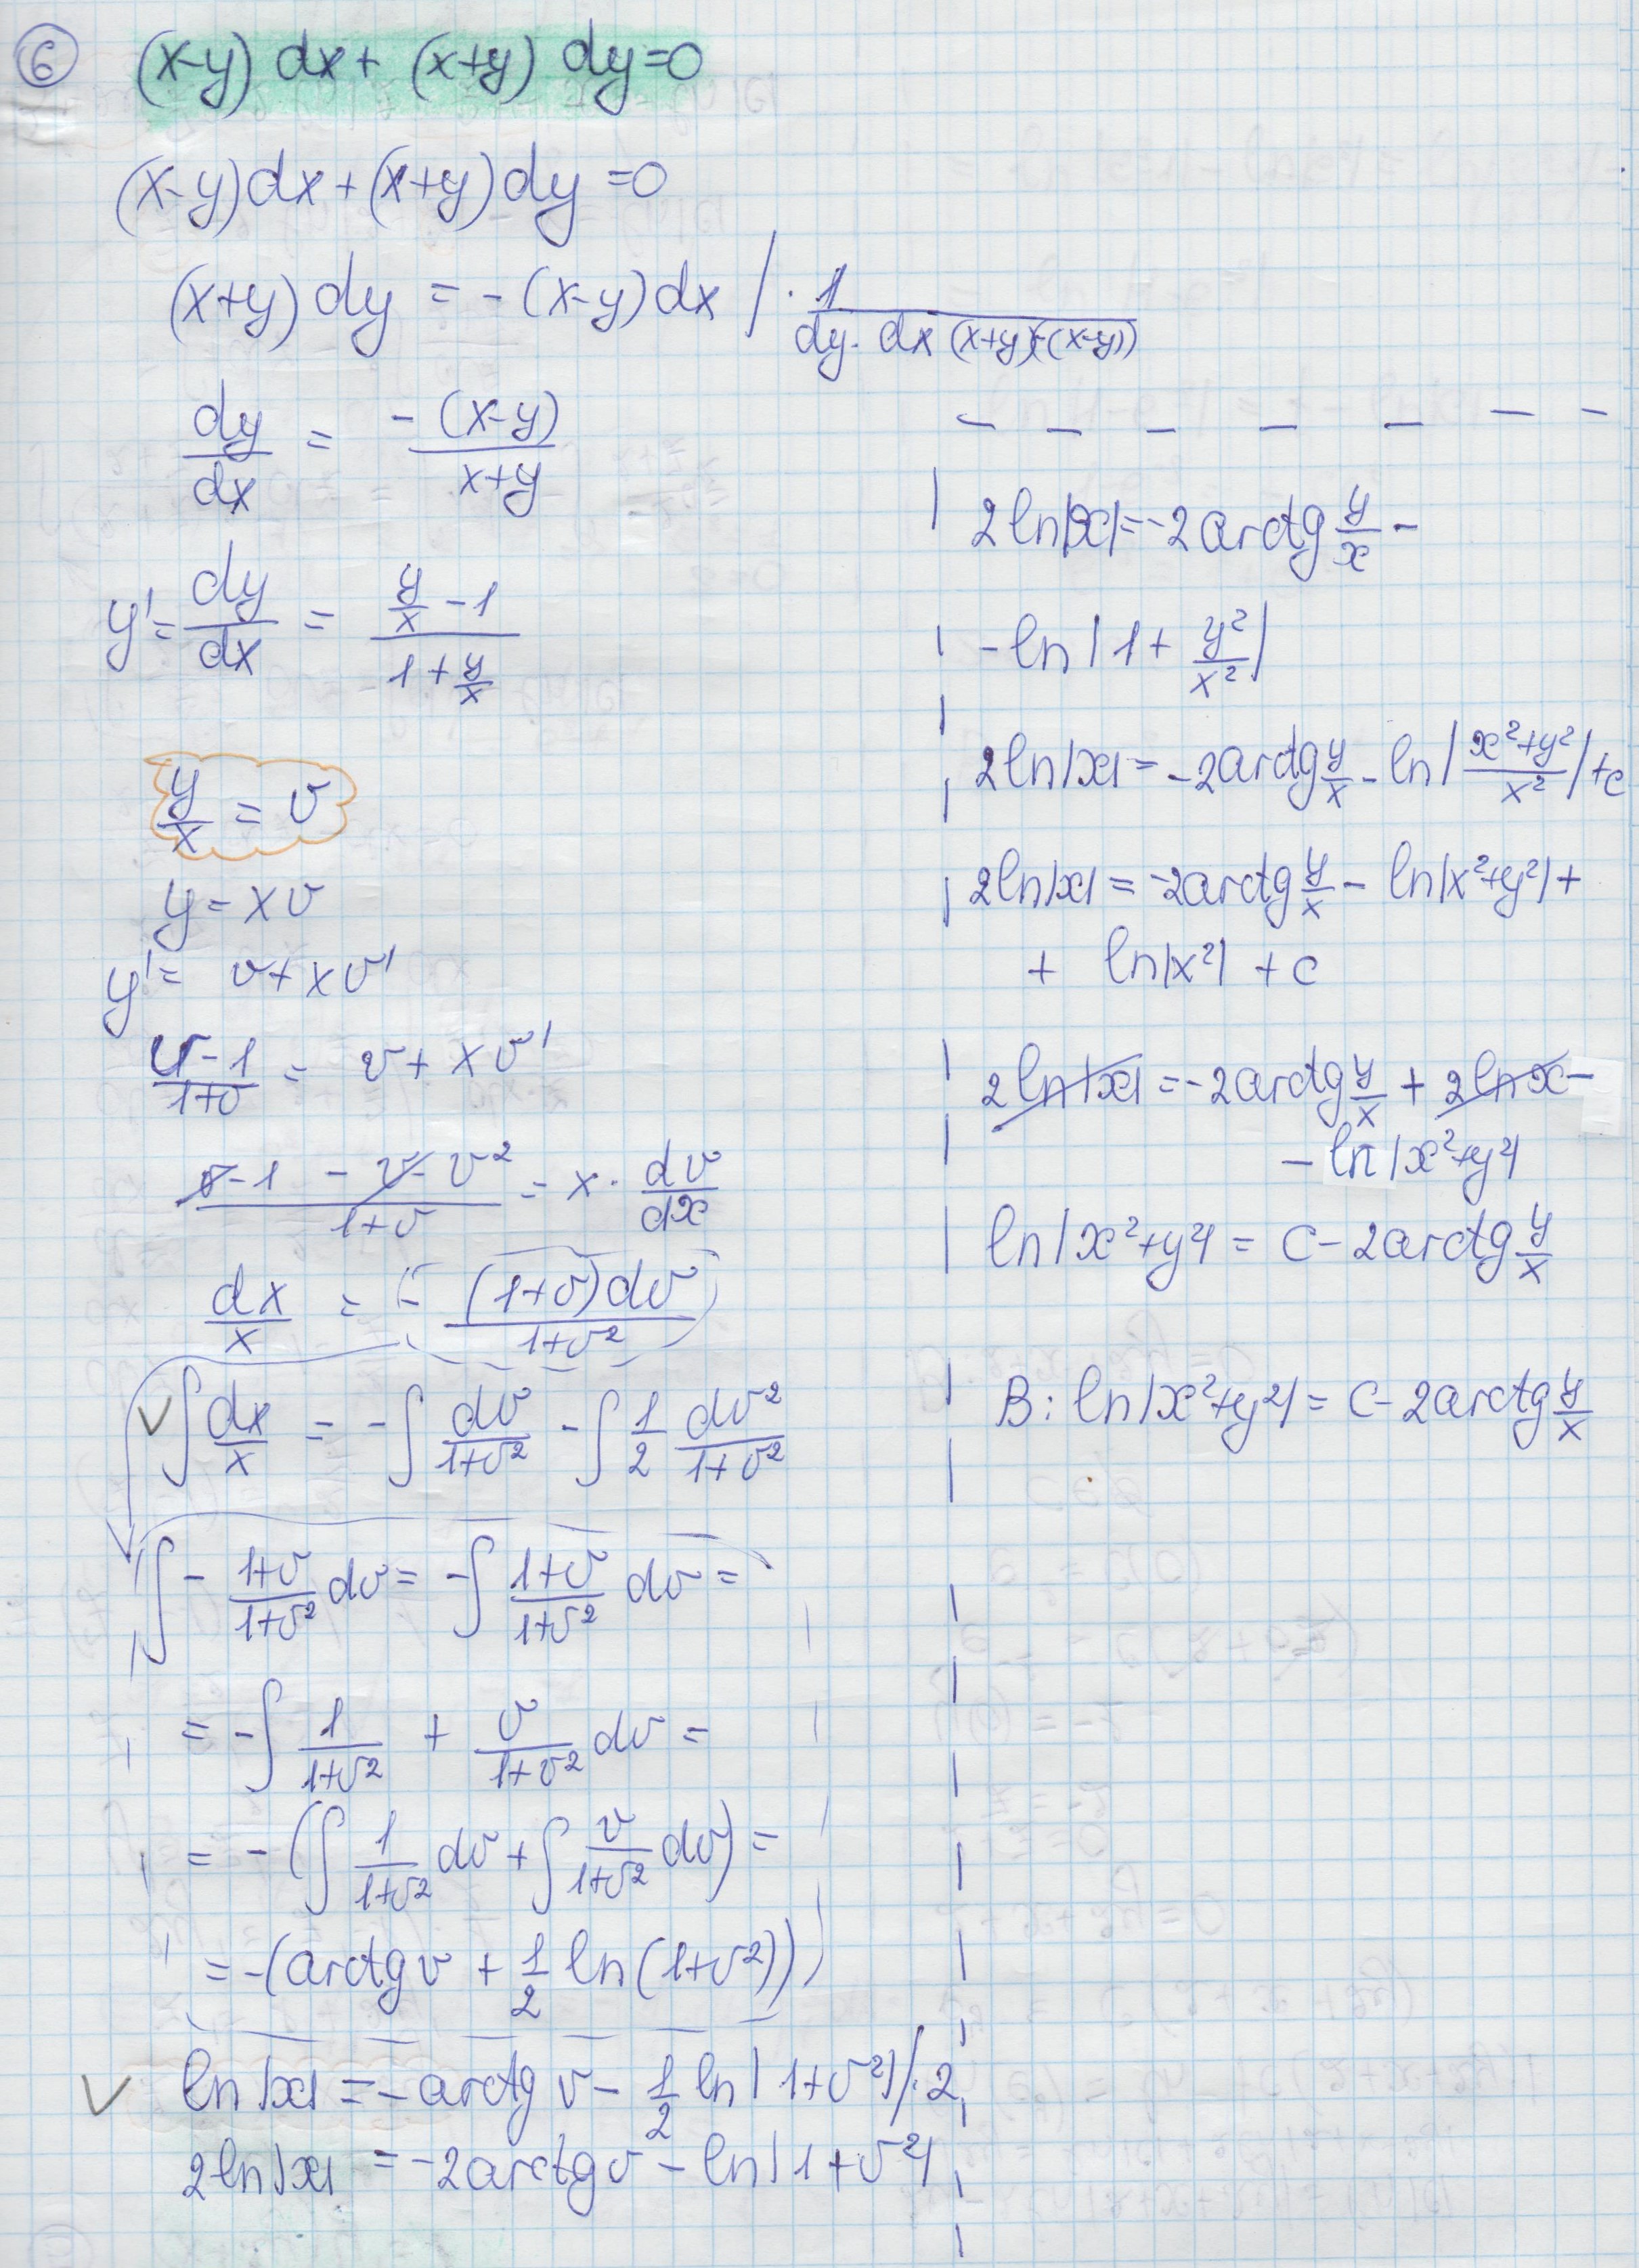 6 (x-y) dx + (x+y) dy=0
(x-y)dx+(x+y)dy=0
(x+y)dy = -(x-y)dx / · 1/(dy·dx (x+y)(-(x-y)))
dy/dx = -(x-y)/(x+y)
y' = dy/dx = (y/x - 1)/(1 + y/x)
y/x = v
y = xv
y' = v + xv'
(v-1)/(1+v) = v + xv'
(v-1 - v - v²)/(1+v) = x · dv/dx
dx/x = - (1+v)dv/(1+v²)
∫ dx/x = -∫ dv/(1+v²) - ∫ 1/2 dv²/(1+v²)
∫ - (1+v)/(1+v²) dv = -∫ (1+v)/(1+v²) dv =
= -∫ 1/(1+v²) + v/(1+v²) dv =
= -(∫ 1/(1+v²) dv + ∫ v/(1+v²) dv) =
= -(arctg v + 1/2 ln(1+v²))
ln|x| = -arctg v - 1/2 ln|1+v²| /·2
2ln|x| = -2arctg v - ln|1+v²|
2ln|x| = -2arctg y/x -
- ln|1 + y²/x²|
2ln|x| = -2arctg y/x - ln|(x²+y²)/x²| + c
2ln|x| = -2arctg y/x - ln|x²+y²| +
+ ln|x²| + c
2ln|x| = -2arctg y/x + 2ln x -
- ln|x²+y²|
ln|x²+y²| = c - 2arctg y/x
B: ln|x²+y²| = c - 2arctg y/x